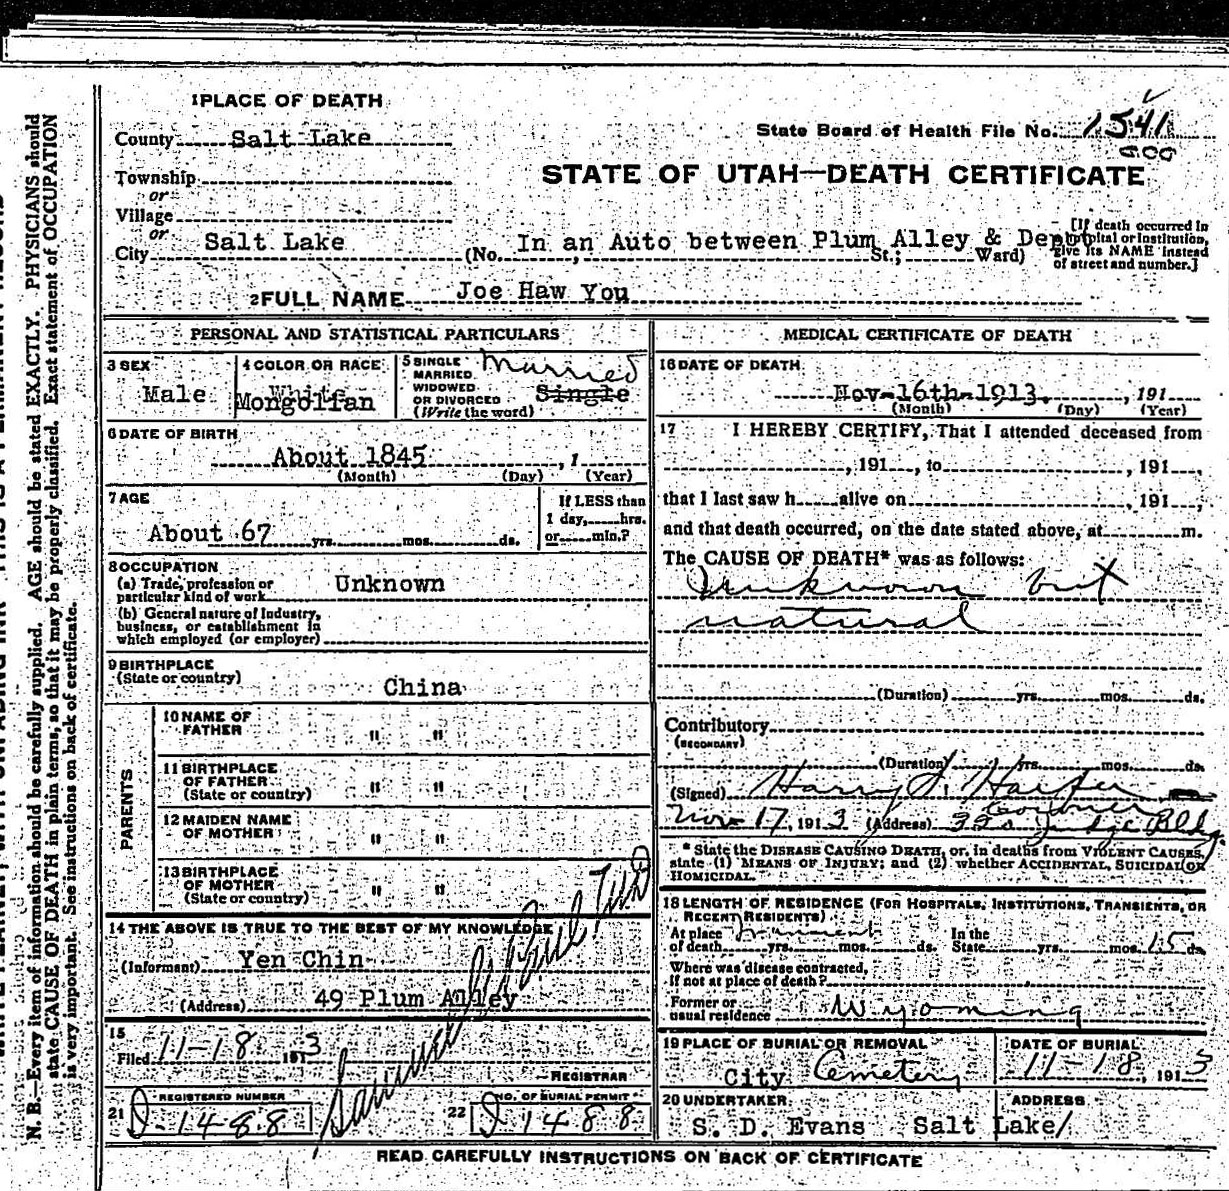 1 PLACE OF DEATH
County Salt Lake
State Board of Health File No. 1541
Township
or
STATE OF UTAH—DEATH CERTIFICATE
Village
or
City Salt Lake (No. In an Auto between Plum Alley & Depot St.; Ward)
[If death occurred in hospital or institution, give its NAME instead of street and number.]
2 FULL NAME Joe Haw You
PERSONAL AND STATISTICAL PARTICULARS
3 SEX
Male
4 COLOR OR RACE
White
Mongolian
5 SINGLE
MARRIED
WIDOWED
OR DIVORCED
(Write the word)
Married
Single
6 DATE OF BIRTH
About 1845, 1
(Month) (Day) (Year)
7 AGE
About 67 yrs. mos. ds.
If LESS than
1 day, hrs.
or min.?
8 OCCUPATION
(a) Trade, profession or
particular kind of work Unknown
(b) General nature of Industry,
business, or establishment in
which employed (or employer)
9 BIRTHPLACE
(State or country)
China
PARENTS
10 NAME OF
FATHER " "
11 BIRTHPLACE
OF FATHER
(State or country) " "
12 MAIDEN NAME
OF MOTHER " "
13 BIRTHPLACE
OF MOTHER
(State or country) " "
14 THE ABOVE IS TRUE TO THE BEST OF MY KNOWLEDGE
(Informant) Yen Chin
(Address) 49 Plum Alley
15
Filed 11-18 1913
REGISTRAR
REGISTERED NUMBER
21 D-1488
NO. OF BURIAL PERMIT
22 D 1488
MEDICAL CERTIFICATE OF DEATH
16 DATE OF DEATH
Nov-16th-1913., 191
(Month) (Day) (Year)
17 I HEREBY CERTIFY, That I attended deceased from
, 191 , to , 191 ,
that I last saw h alive on , 191 ,
and that death occurred, on the date stated above, at m.
The CAUSE OF DEATH* was as follows:
Unknown but
natural
(Duration) yrs. mos. ds.
Contributory
(SECONDARY)
(Duration) yrs. mos. ds.
(Signed) Harry S. Harper
Coroner
Nov 17, 1913 (Address) Judge Bldg.
* State the DISEASE CAUSING DEATH, or, in deaths from VIOLENT CAUSES,
state (1) MEANS OF INJURY; and (2) whether ACCIDENTAL, SUICIDAL OR
HOMICIDAL.
18 LENGTH OF RESIDENCE (FOR HOSPITALS, INSTITUTIONS, TRANSIENTS, OR
RECENT RESIDENTS)
At place In the
of death yrs. mos. ds. State yrs. mos. 15 ds.
Where was disease contracted,
if not at place of death?
Former or
usual residence Wyoming
19 PLACE OF BURIAL OR REMOVAL
City Cemetery
DATE OF BURIAL
11-18, 1913
20 UNDERTAKER
S. D. Evans
ADDRESS
Salt Lake/
READ CAREFULLY INSTRUCTIONS ON BACK OF CERTIFICATE
N. B.—Every item of information should be carefully supplied. AGE should be stated EXACTLY. PHYSICIANS should
state CAUSE OF DEATH in plain terms, so that it may be properly classified. Exact statement of OCCUPATION
is very important. See instructions on back of certificate.